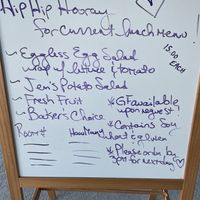 Hip Hip Hooray
for current lunch menu!
15.00 each
~ Eggless Egg Salad
w/ lettuce & tomato
~ Jen's Potato Salad
~ Fresh Fruit
~ Baker's Choice
* GF available
upon request!
* Contains Soy
wheat & gluten
* Please order by
3pm for next day
Room #
How Many